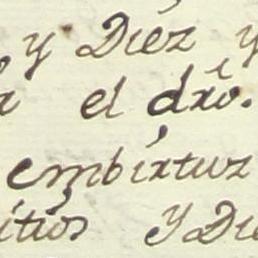 y Diez y
el dr̃o.
embirtuz
itios y Die